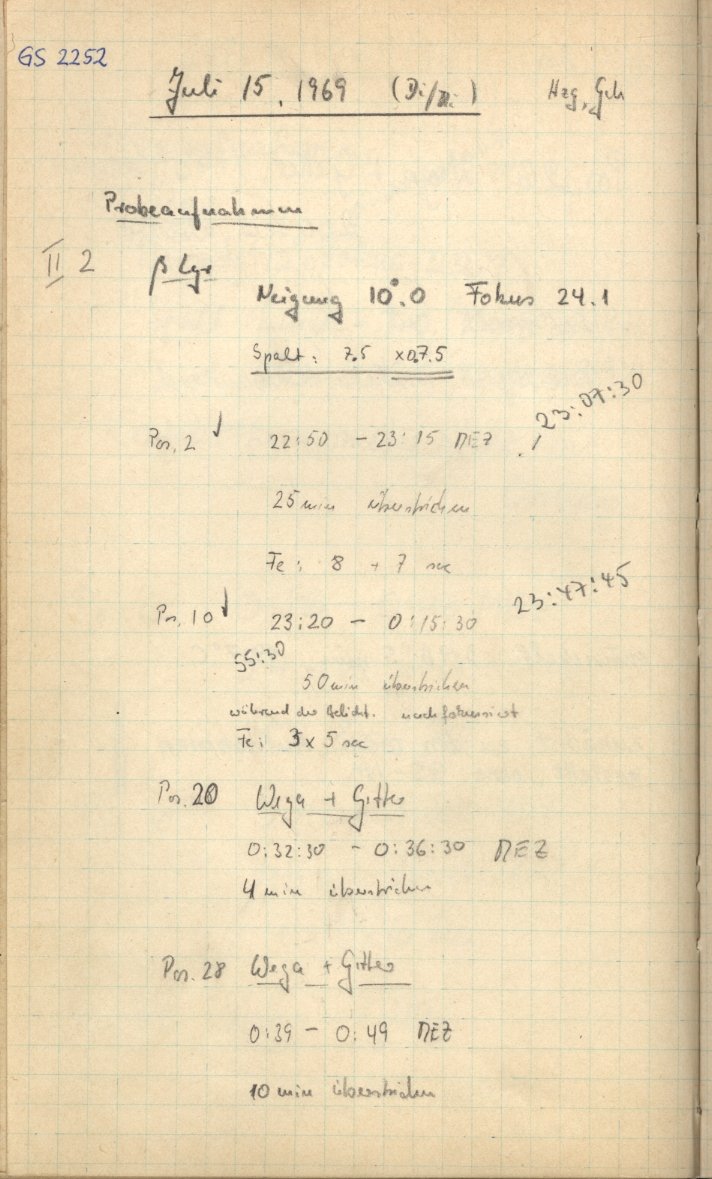 GS 2252
Juli 15, 1969 (Di/Mi) Hzg, Geh
Probeaufnahmen
II 2 β Lyr
Neigung 10°.0 Fokus 24.1
Spalt: 7.5 × 0.7.5
Pos. 2 22:50 - 23:15 MEZ 23:07:30
25 min überstrichen
Fe: 8 + 7 sec
Pos. 10 23:20 - 0:15:30 23:47:45
55:30
50 min überstrichen
während der Belicht. nachfokussiert
Fe: 3 x 5 sec
Pos. 20 Wega + Gitter
0:32:30 - 0:36:30 MEZ
4 min überstrichen
Pos. 28 Wega + Gitter
0:39 - 0:49 MEZ
10 min überstrichen